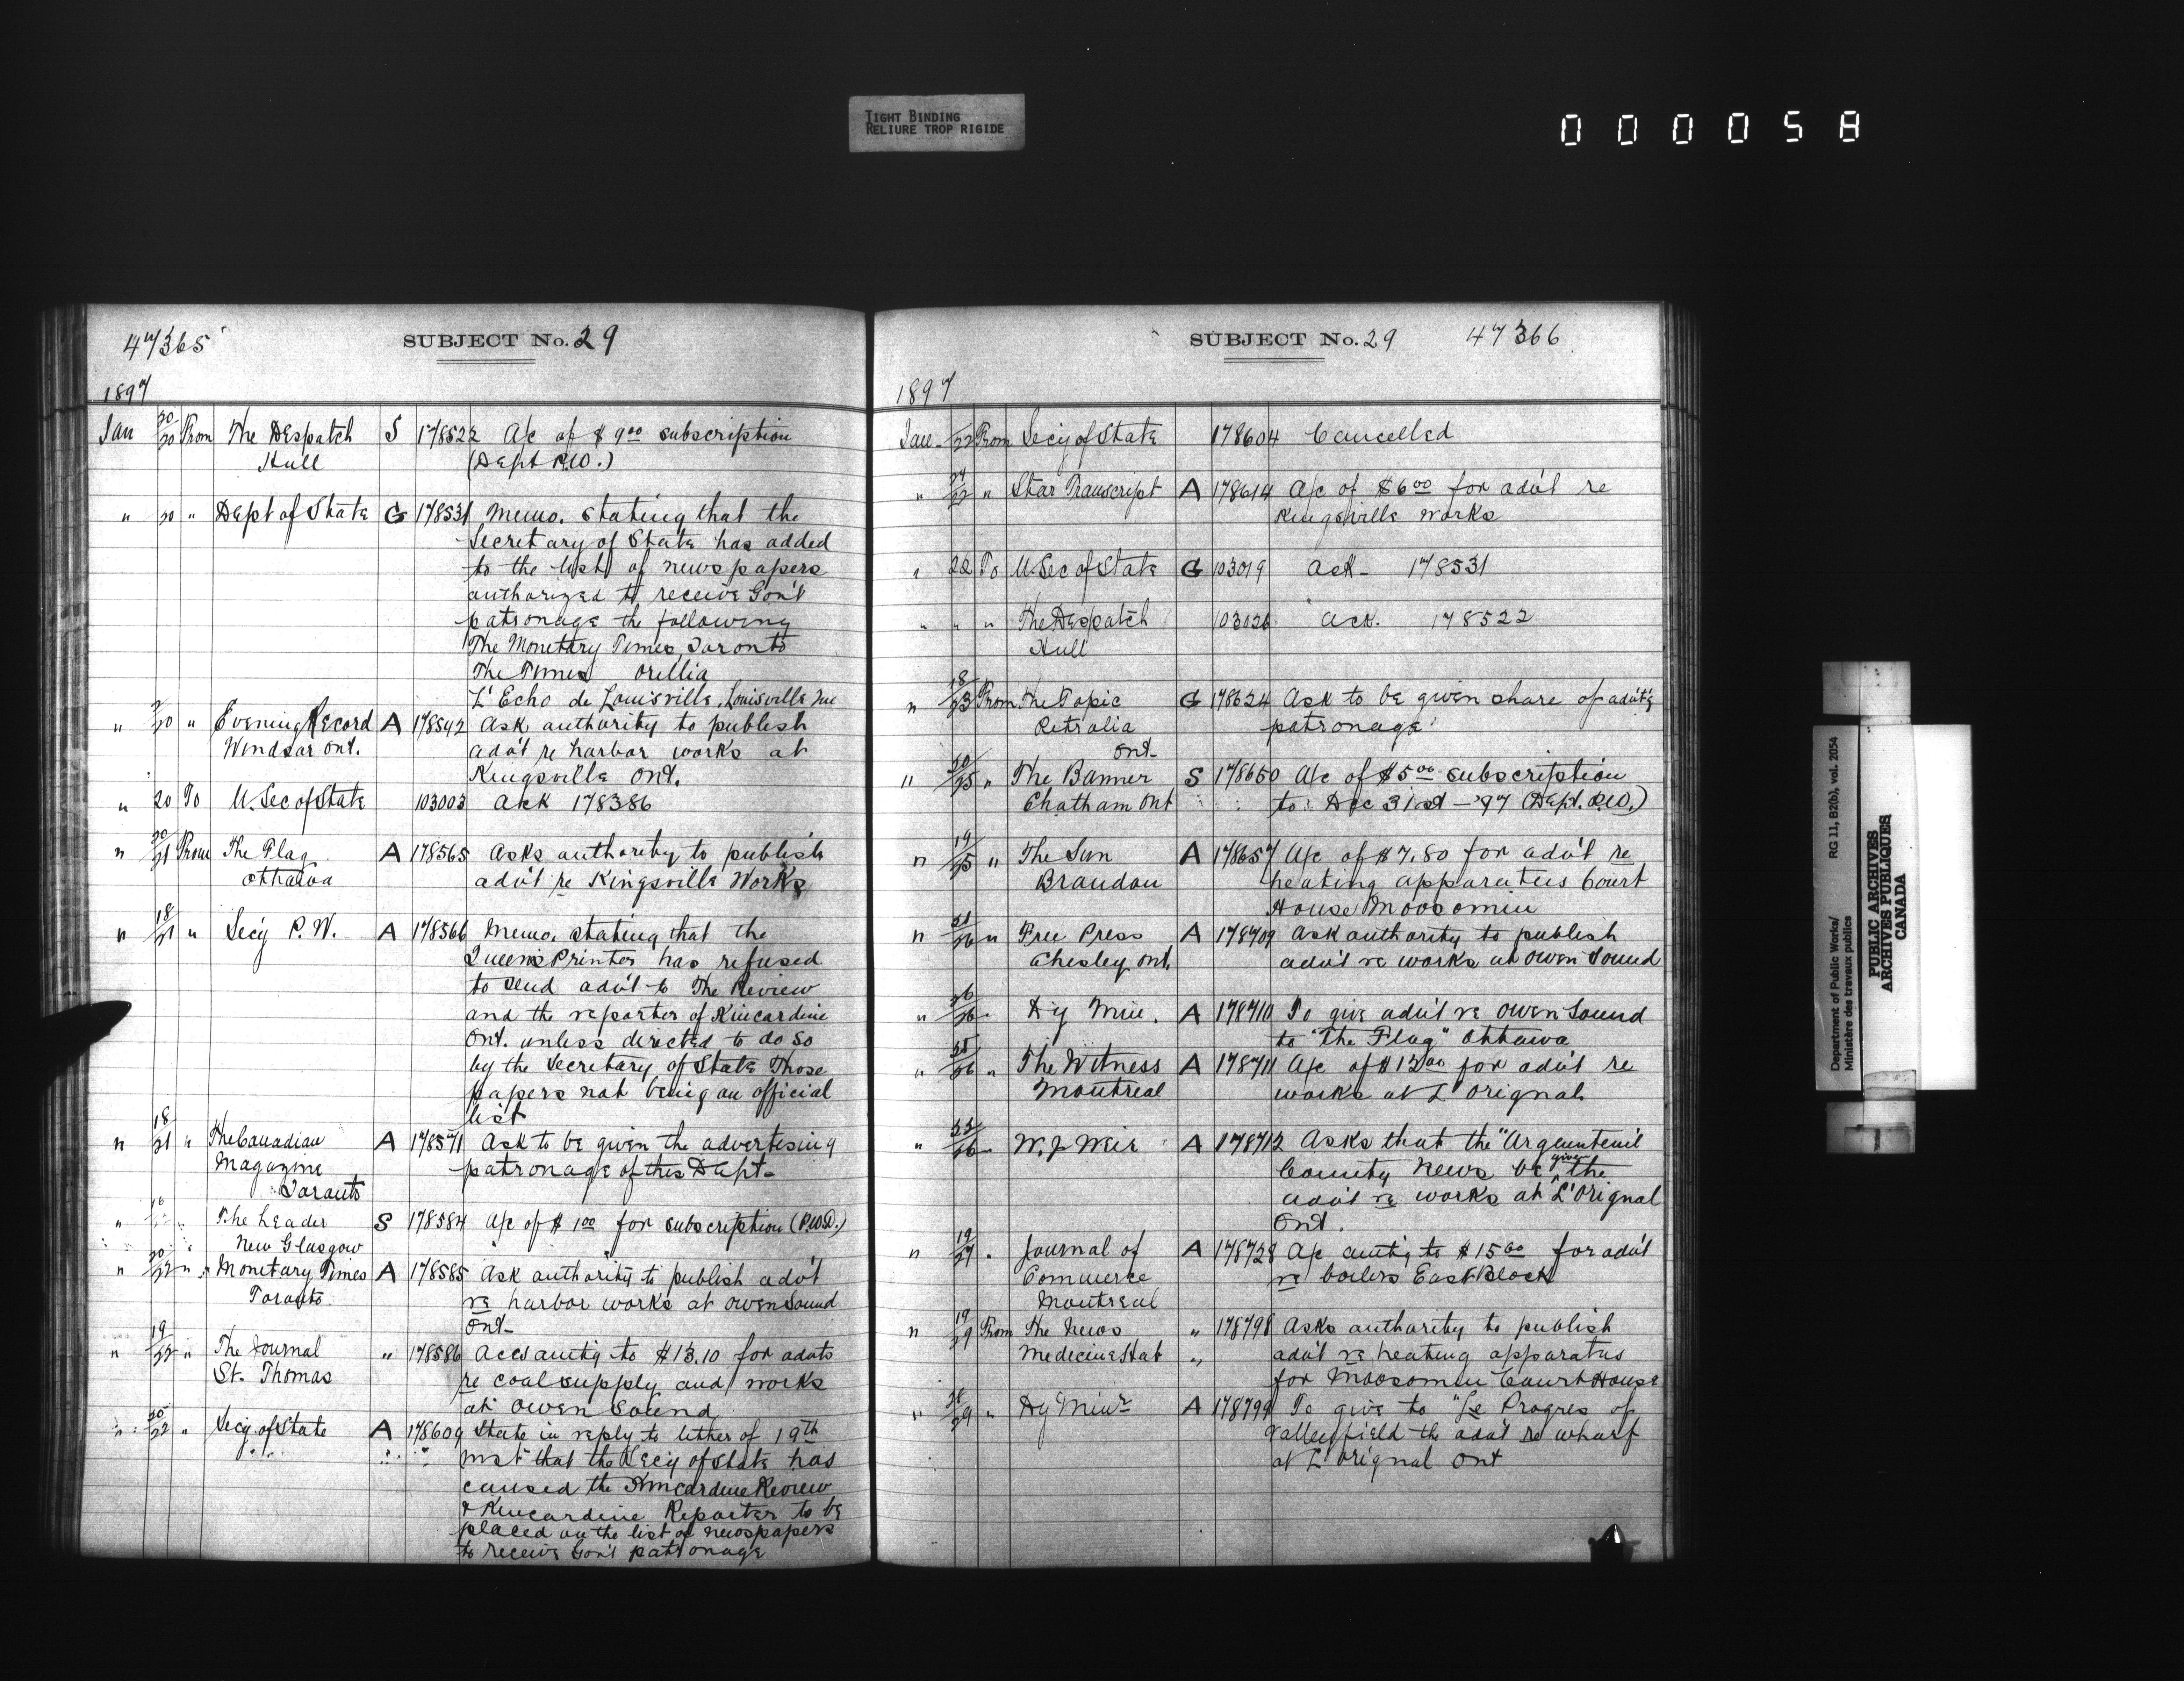 TIGHT BINDING
RELIURE TROP RIGIDE
000058
47365
SUBJECT No. 29
1897
Jan 20/20 From The Despatch S 178522 A/c of $9.00 subscription
Hull (Dept P.W.)
" 20 " Dept of State G 178531 Memo. stating that the
Secretary of State has added
to the list of newspapers
authorized to receive Gov't
patronage the following
The Monetary Times, Toronto
The Times Orillia
L'Echo de Louisville, Louisville Que
" /20 " Evening Record A 178542 Ask authority to publish
Windsor Ont. adv't re harbor works at
Kingsville Ont.
" 20 To U. Sec of State 103003 Ack 178386
" 20/21 From The Flag A 178565 Asks authority to publish
Ottawa adv't re Kingsville Works
" 18/21 " Secy P.W. A 178566 Memo. stating that the
Queen's Printer has refused
to send adv't to The Review
and the reporter of Kincardine
Ont. unless directed to do so
by the Secretary of State Those
papers not being on official
list
" 18/21 " The Canadian A 178571 Ask to be given the advertising
Magazine patronage of this Dept-
Toronto
" " The Leader S 178584 A/c of $1.00 for subscription (P.W.D.)
New Glasgow
" 20/22 " Monetary Times A 178585 Ask authority to publish adv't
Toronto re harbor works at Owen Sound
Ont-
" 19/22 " The Journal " 178586 Accs amt'g to $13.10 for advts
St. Thomas re coal supply and works
at Owen Sound
" 20/22 " Secy. of State A 178609 State in reply to letter of 19th
inst that the Secy of State has
caused the Kincardine Review
& Kincardine Reporter to be
placed on the list of newspapers
to receive Gov't patronage
SUBJECT No. 29 47366
1897
Jan - /22 From Secy of State 178604 Cancelled
" /22 " Star Transcript A 178614 A/c of $6.00 for adv't re
Kingsville works
" 22 To U. Sec of State G 103019 Ack- 178531
" " " The Despatch 103026 Ack. 178522
Hull
" 18/23 From The Topic G 178624 Ask to be given share of adv't'g
Petrolia patronage
Ont-
" 20/25 " The Banner S 178650 A/c of $5.00 subscription
Chatham Ont to Dec 31st - '97 (Dept. P.W.)
" 19/25 " The Sun A 178657 A/c of $7.80 for adv't re
Brandon heating apparatus Court
House Moosomin
" /26 " Free Press A 178709 Ask authority to publish
Chesley Ont. adv't re works at Owen Sound
" 26/26 " Dy Min. A 178710 To give adv't re Owen Sound
to "The Flag" Ottawa
" 25/26 " The Witness A 178711 A/c of $12.00 for adv't re
Montreal works at L'Orignal
" /26 " W. J Weir A 178712 Asks that the "Argenteuil
County News be given the
adv't re works at L'Orignal
Ont.
" 19/27 " Journal of A 178728 A/c amt'g to $15.00 for adv't
Commerce re boilers East Block
Montreal
" 19/29 From The News " 178798 Asks authority to publish
Medicine Hat " adv't re heating apparatus
for Moosomin Court House
" 28/29 " Dy Minr A 178799 To give to "Le Progres of
Valleyfield the adv't re wharf
at L'Orignal Ont
Department of Public Works/ RG 11, B2(b), vol. 2054
Ministère des travaux publics
PUBLIC ARCHIVES
ARCHIVES PUBLIQUES
CANADA